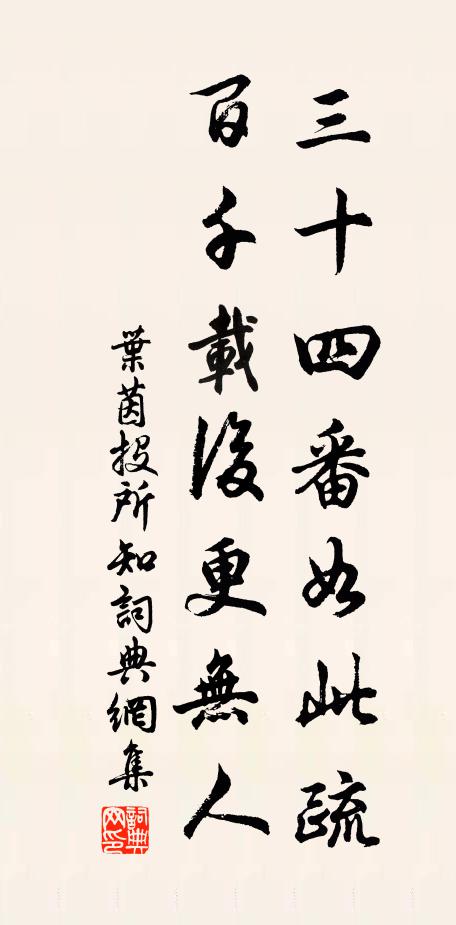 三十四番如此疏
百千載後更無人
葉茵投所知詞典網集
詞典網印